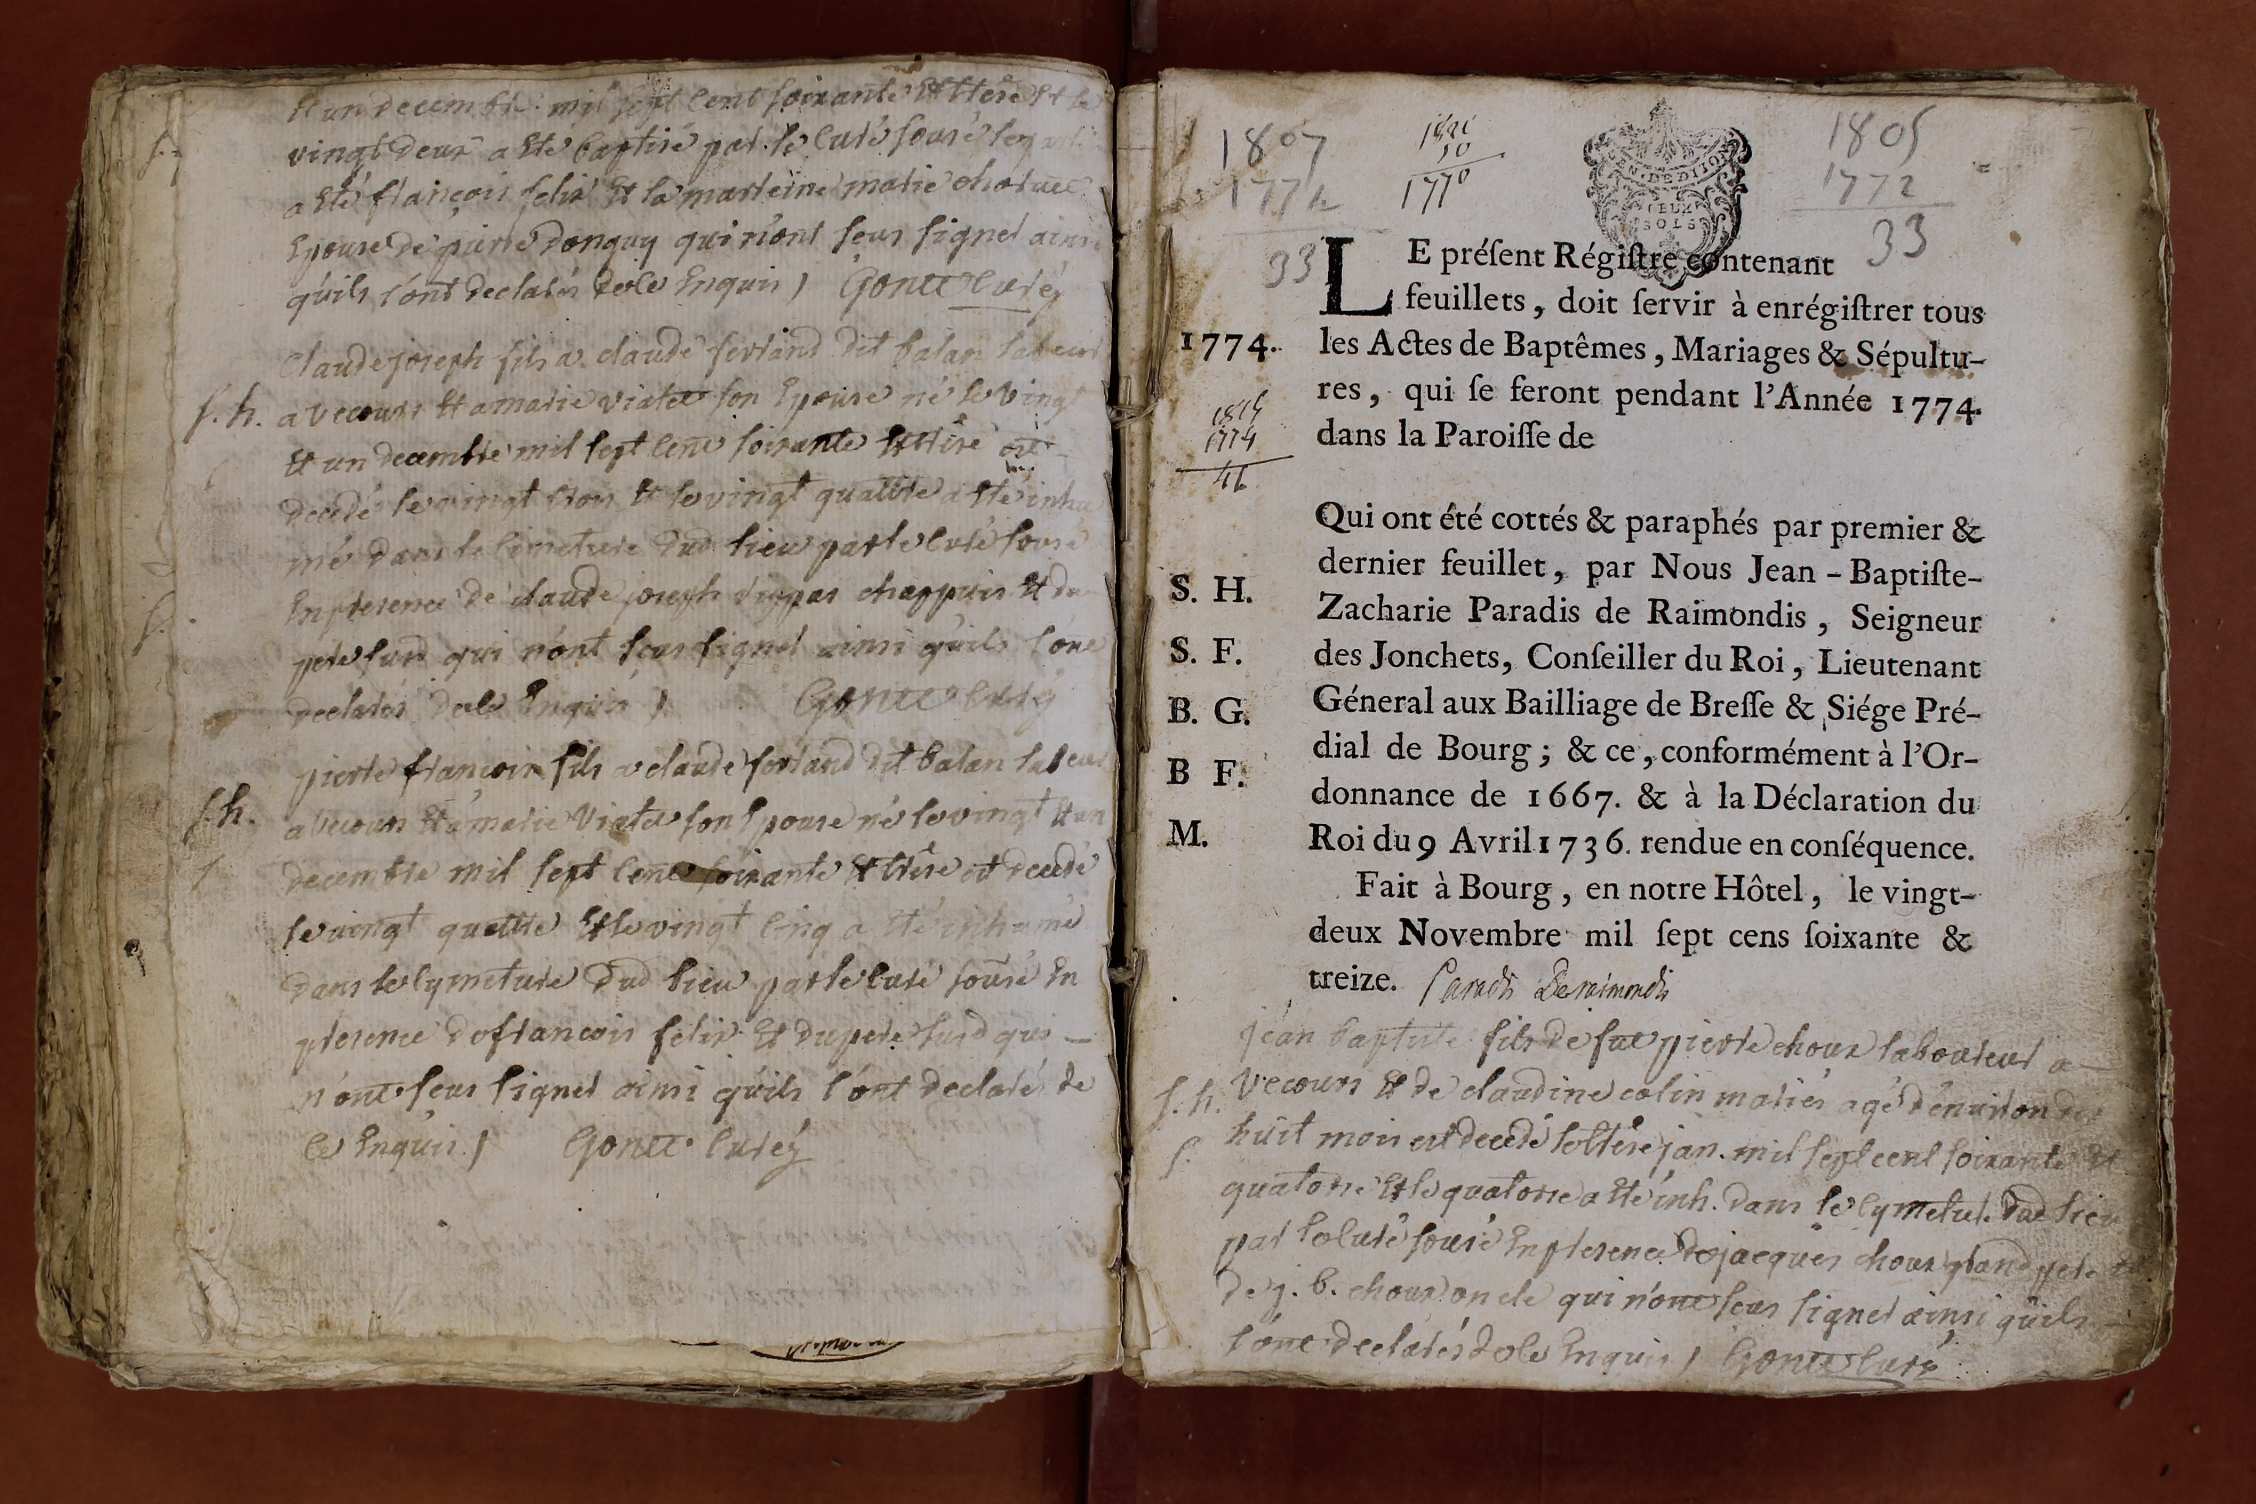 Et un decembre mil sept cent soixante Et trese Et le
vingt deux a Eté baptisé par le curé sousé le
a Eté françois felix Et la marreine marie
Epouse de pierre donguy qui n'ont sçus signer ainsi
qu'ils l'ont declarés de ce Enquis / Gonet curé
Claude joseph fils a claude ferland dit balan labeur
s. h. a vecours Et a marie viatet son Epouse né le vingt
Et un decembre mil sept cent soixante Et trese est
decedé le vingt trois Et le vingt quattre a Eté inhu
mé dans le cimeture dud lieu par le curé sousé
En presence de claude joseph chappuis Et du
pere susd qui n'ont sçus signer ainsi qu'ils l'ont
declarés de ce Enquis / Gonet curé
pierre françois fils a claude ferland dit balan labeur
s. h. a vecours Et a marie viatet son Epouse né le vingt Et un
decembre mil sept cent soixante Et trese est decedé
le vingt quattre Et le vingt cinq a Eté inhumé
dans le cymeture dud lieu par le curé sousé En
presence de francois felix Et du pere susd qui
n'ont sçus signer ainsi qu'ils l'ont declarés de
ce Enquis / Gonet curé
1807
1774
33
1820
50
1770
GEN. DE DIJON
DEUX
SOLS
1805
1772
33
LE préſent Régiſtre contenant
feuillets, doit ſervir à enrégiſtrer tous
1774. les Actes de Baptêmes, Mariages & Sépultu-
res, qui ſe feront pendant l'Année 1774.
dans la Paroiſſe de
1815
1774
41
Qui ont été cottés & paraphés par premier &
dernier feuillet, par Nous Jean-Baptiſte-
S. H. Zacharie Paradis de Raimondis, Seigneur
S. F. des Jonchets, Conſeiller du Roi, Lieutenant
B. G. Géneral aux Bailliage de Breſſe & Siége Pré-
B F. dial de Bourg; & ce, conformément à l'Or-
donnance de 1667. & à la Déclaration du
M. Roi du 9 Avril 1736. rendue en conſéquence.
Fait à Bourg, en notre Hôtel, le vingt-
deux Novembre mil ſept cens ſoixante &
treize. Paradis Deraimondis
jean baptiste fils de fut pierre choux laboureur a
s. h. vecours Et de claudine colin mariés agé d'environ dix
huit mois est decedé le trese jan. mil sept cent soixante Et
quatorse Et le quatorse a Eté inh. dans le cymeture dud lieu
par le curé sousé En presence de jacques choux grand pere Et
de j. b. choux oncle qui n'ont sçus signer ainsi qu'ils
l'ont declarés de ce Enquis / Gonet curé